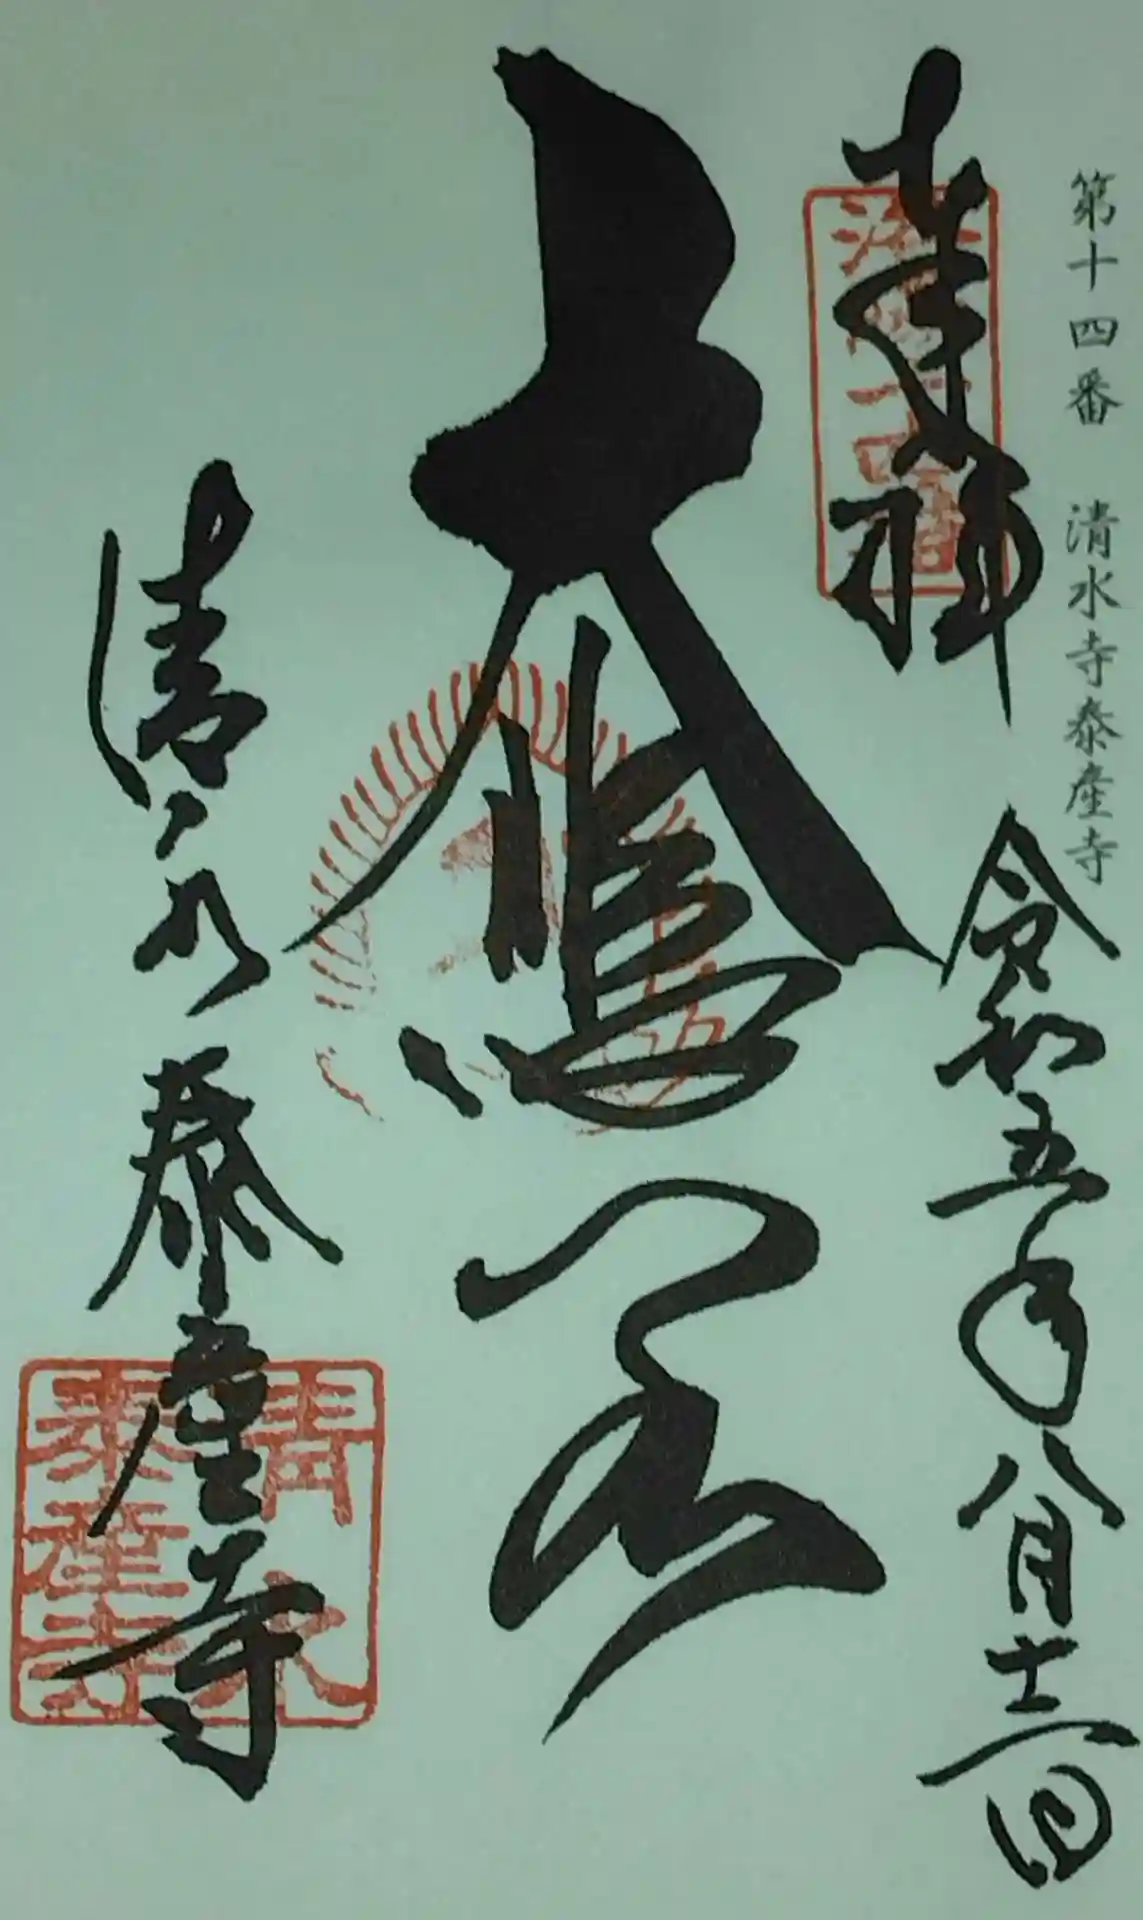 第十四番 清水寺泰産寺
奉拝
令和五年八月十二日
大悲閣
清水泰産寺
清水
泰産寺